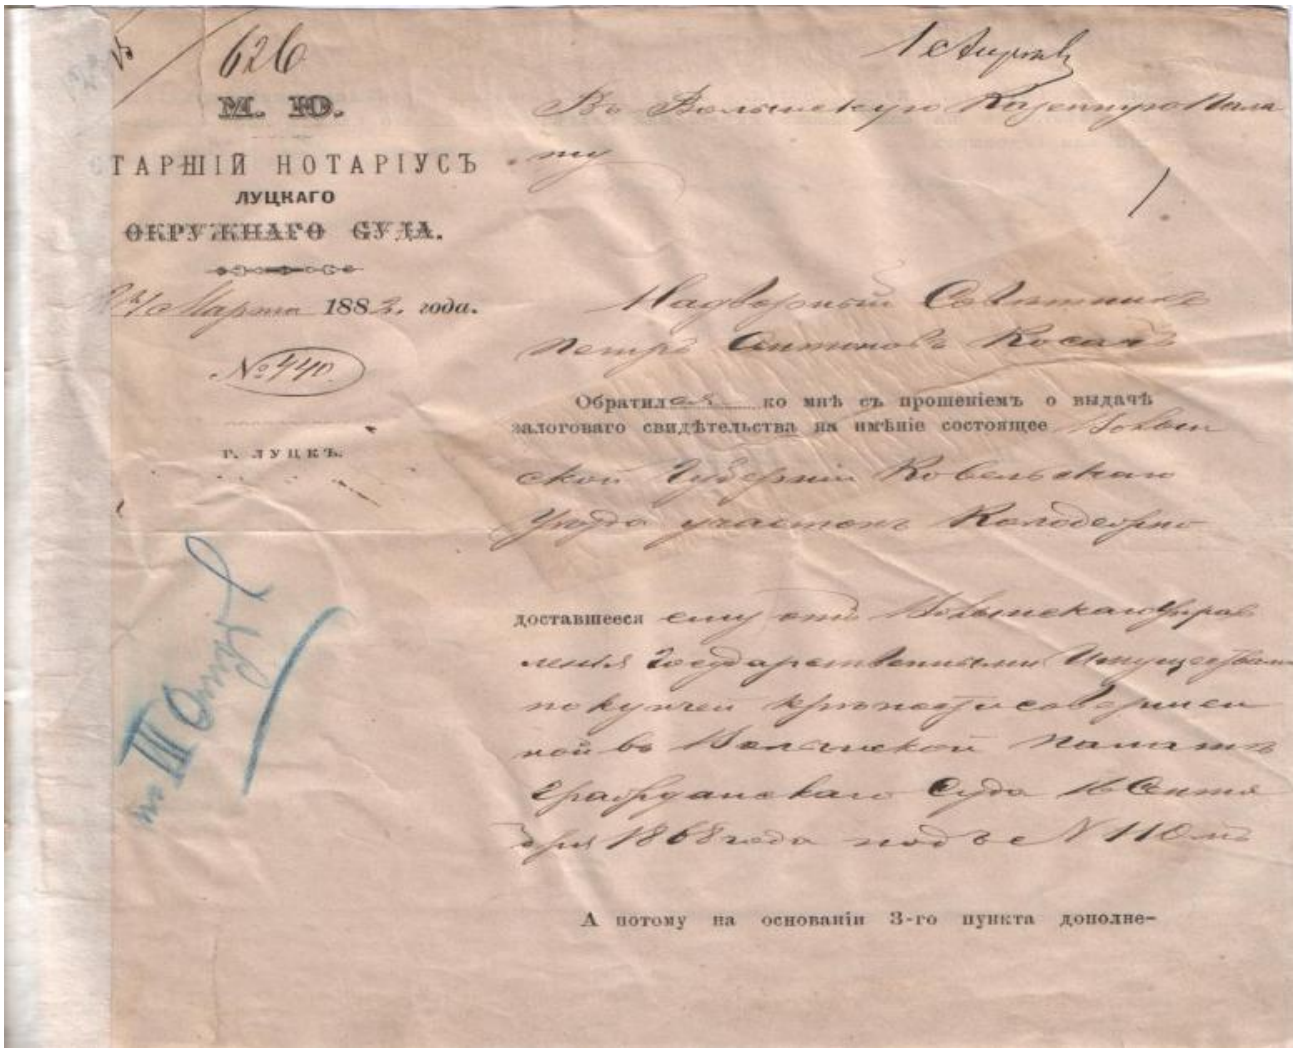 626
М. Ю.
СТАРШІЙ НОТАРІУСЪ
ЛУЦКАГО
ОКРУЖНАГО СУДА.
Марта 1882. года.
№ 440
Г. ЛУЦКЪ.
по III Отд
1 Апрѣля
Въ Волынскую Казенную Пала
ту
1.
Надворный Совѣтникъ
Петръ Антоновъ Косачъ
Обратился ко мнѣ съ прошеніемъ о выдачѣ
залоговаго свидѣтельства на имѣніе состоящее Волын
ской Губерніи Ковельскаго
Уѣзда участокъ Колодежно
доставшееся ему отъ Волынскаго Управ
ленія Государственными Имуществами
по купчей крѣпости совершен
ной въ Волынской Палатѣ
Гражданскаго Суда 16 Сентя
бря 1868 года подъ № 110мъ
А потому на основаніи 3-го пункта дополне-